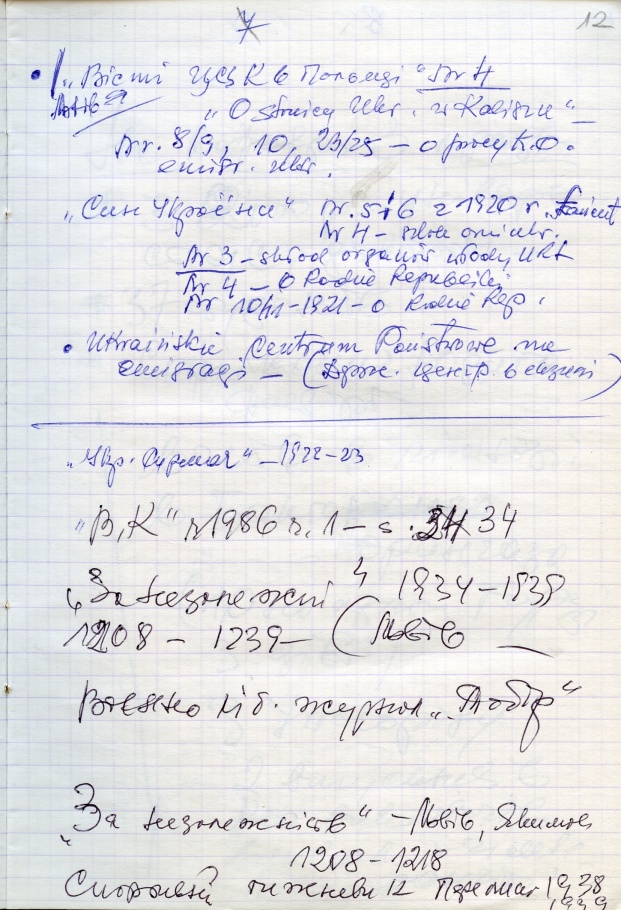 12
„Вісті УЦК в Польщі" Nr 4
Львів
„O stanicy Ukr. w Kaliszu"
Nr. 8/9, 10, 23/25 — o pracy K.O.
emigr. ukr.
„Син України" Nr. 5 i 6 z 1920 r.
Nr 4 —
Nr 3 — skład organów władzy URL
Nr 4 — O Radzie Republiki
Nr 10/11 - 1921 - o Radzie Rep.
• Ukraińskie Centrum Państwowe na
emigracji — (Держ. центр. в екзилі)
„Укр. Сурмач" — 1922-23
„В,К" z 1986 r. 1 — s. 34
„За незалежність" 1934-1939
1208 — 1239 — (Львів
Воєнно літ. журнал „Табор"
„За незалежність" — Львів,
1208 - 1218
тижневик 1938
1939